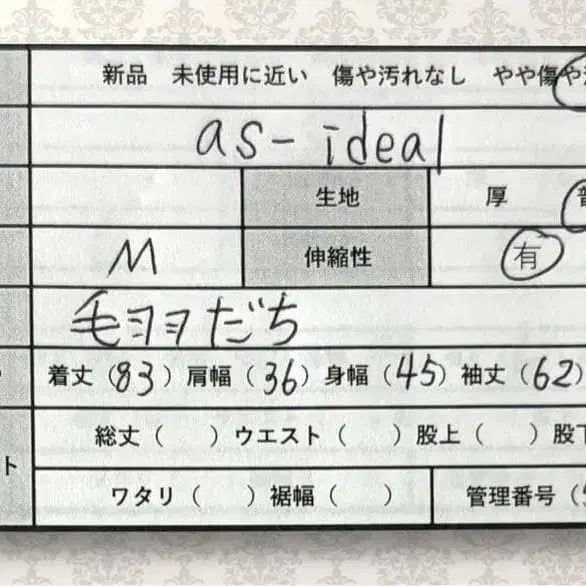 新品 未使用に近い 傷や汚れなし やや傷や
as-ideal
生地 厚
M 伸縮性 有
毛ヨヨだち
着丈(83) 肩幅(36) 身幅(45) 袖丈(62)
総丈( ) ウエスト( ) 股上( ) 股下
ト
ワタリ( ) 裾幅( ) 管理番号(